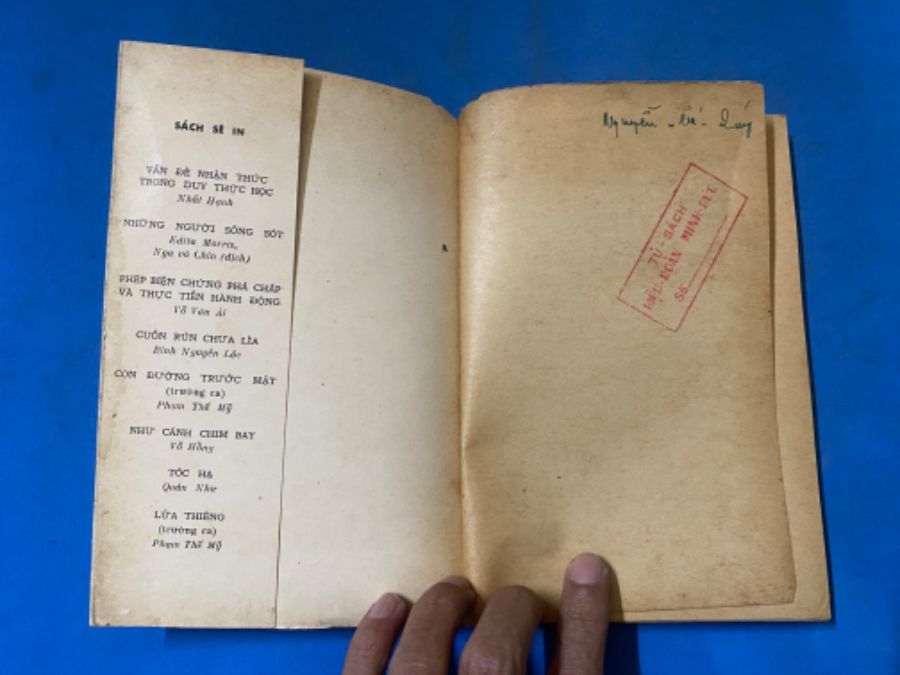 SÁCH SẼ IN
VẤN ĐỀ NHẬN THỨC
TRONG DUY THỨC HỌC
Nhất Hạnh
NHỮNG NGƯỜI SỐNG SÓT
Edita Morris,
Nga và Chín (dịch)
PHÉP BIỆN CHỨNG PHÁ CHẤP
VÀ THỰC TIỄN HÀNH ĐỘNG
Võ Văn Ái
CUỐN RÚN CHƯA LÌA
Bình Nguyên Lộc
CON ĐƯỜNG TRƯỚC MẶT
(trường ca)
Phạm Thế Mỹ
NHƯ CÁNH CHIM BAY
Võ Hồng
TÓC HẠ
Quán Như
LỬA THIÊNG
(trường ca)
Phạm Thế Mỹ
Nguyễn
TỦ-SÁCH
MINH-ĐỨC
Số